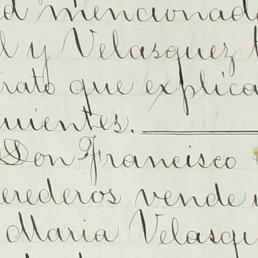 d mencionad
l y Velasquez t
trato que explica
uientes.
Don Francisco
erederos vende
Maria Velasqu